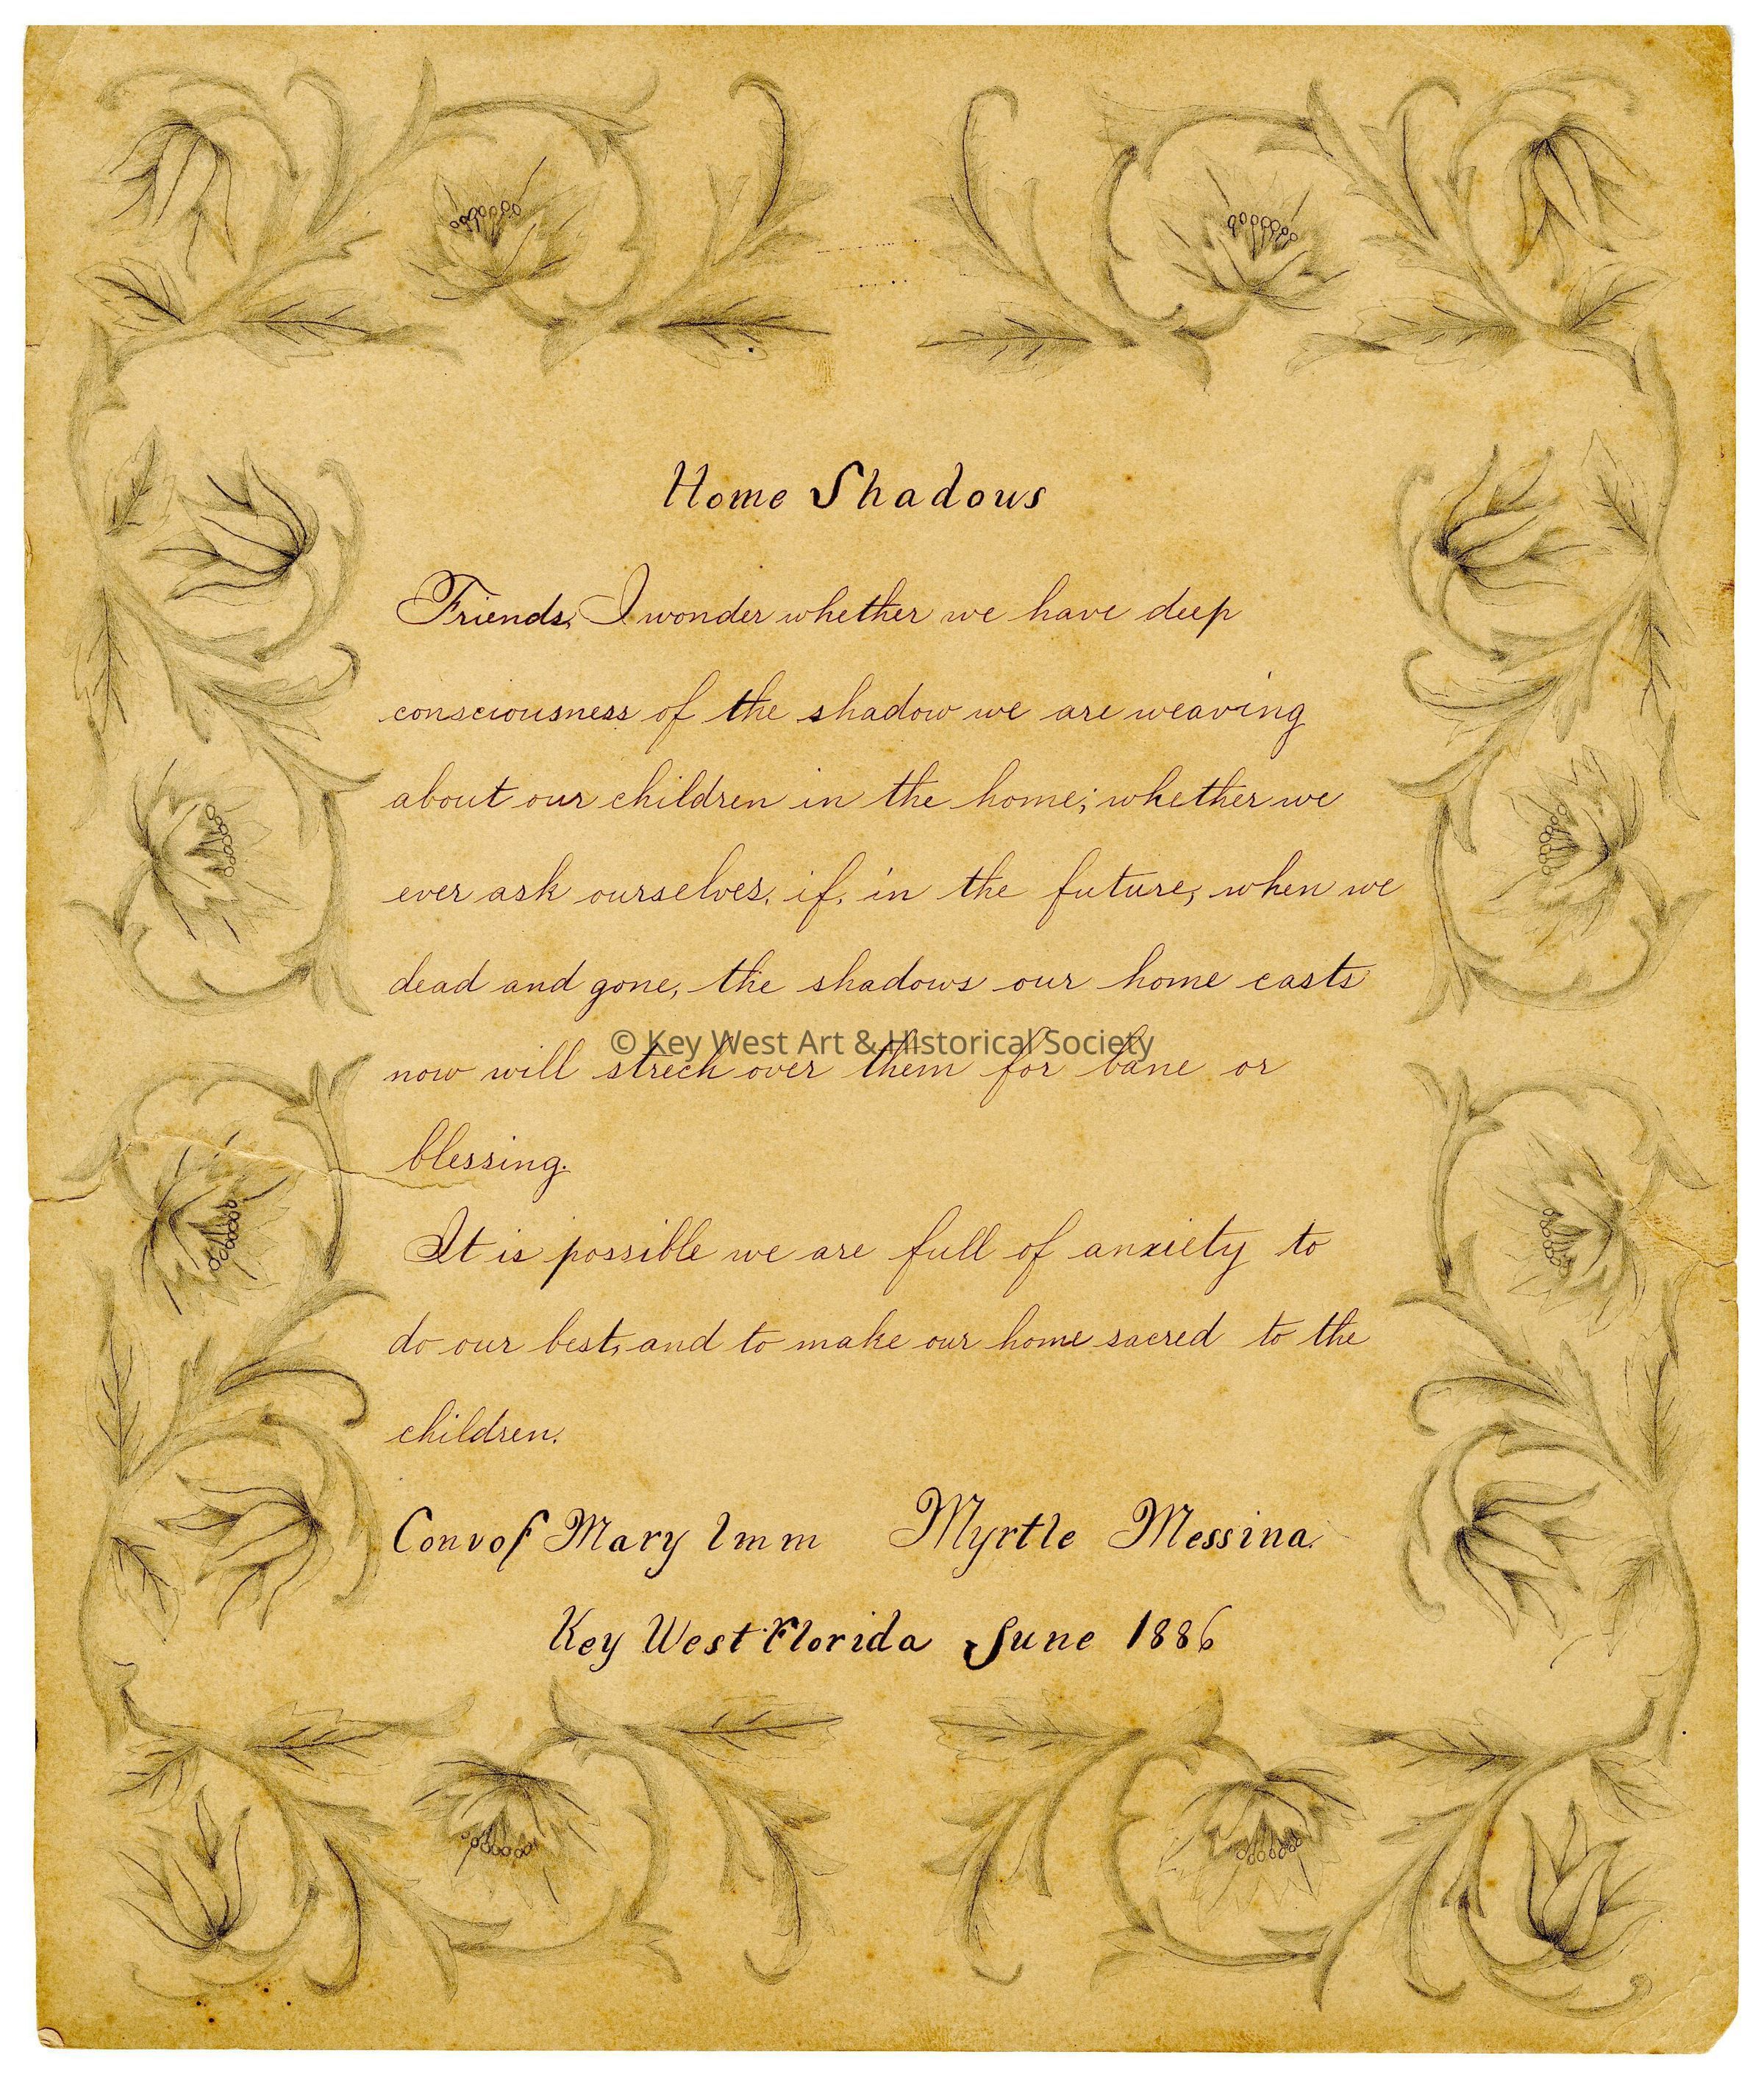 Home Shadows
Friends, I wonder whether we have deep
consciousness of the shadow we are weaving
about our children in the home; whether we
ever ask ourselves, if, in the future, when we
dead and gone, the shadows our home casts
© Key West Art & Historical Society
now will strech over them for bane or
blessing.
It is possible we are full of anxiety to
do our best, and to make our home sacred to the
children.
Conv of Mary Imm Myrtle Messina.
Key West Florida June 1886